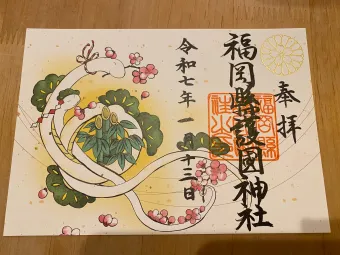 奉拝
福岡縣護國神社
令和七年一月十三日